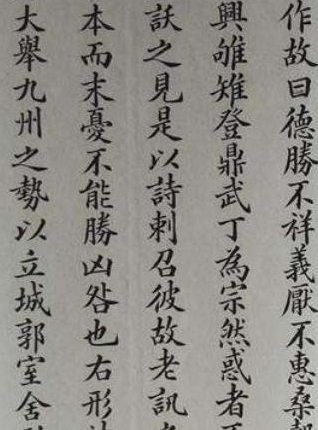 作故曰德勝不祥義厭不惠桑
興雊雉登鼎武丁為宗然惑者
訞之見是以詩刺召彼故老訊
本而末憂不能勝凶咎也右形
大舉九州之勢以立城郭室舍